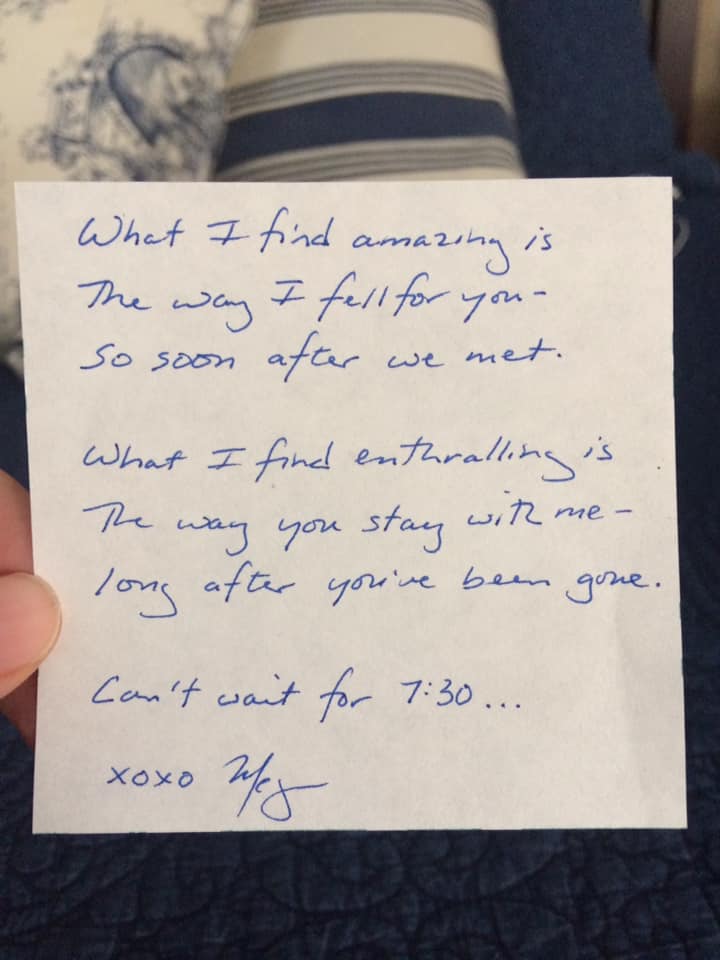 What I find amazing is
The way I fell for you-
So soon after we met.
What I find enthralling is
The way you stay with me-
long after you've been gone.
Can't wait for 7:30...
xoxo Meg